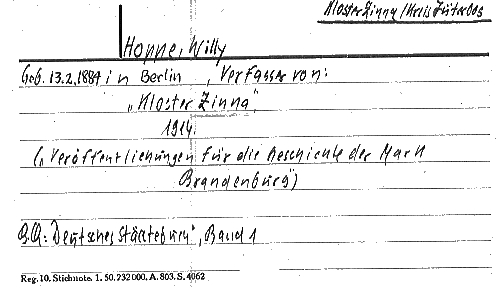 Kloster Zinna / Kreis Jüterbog
Hoppe, Willy
Geb. 13.2.1884 in Berlin, Verfasser von:
"Kloster Zinna",
1914.
("Veröffentlichungen für die Geschichte der Mark
Brandenburg")
B.Q.: "Deutsches Städtebuch", Band 1
Reg. 10. Stichnote. 1. 50. 232000. A. 803. S. 4062